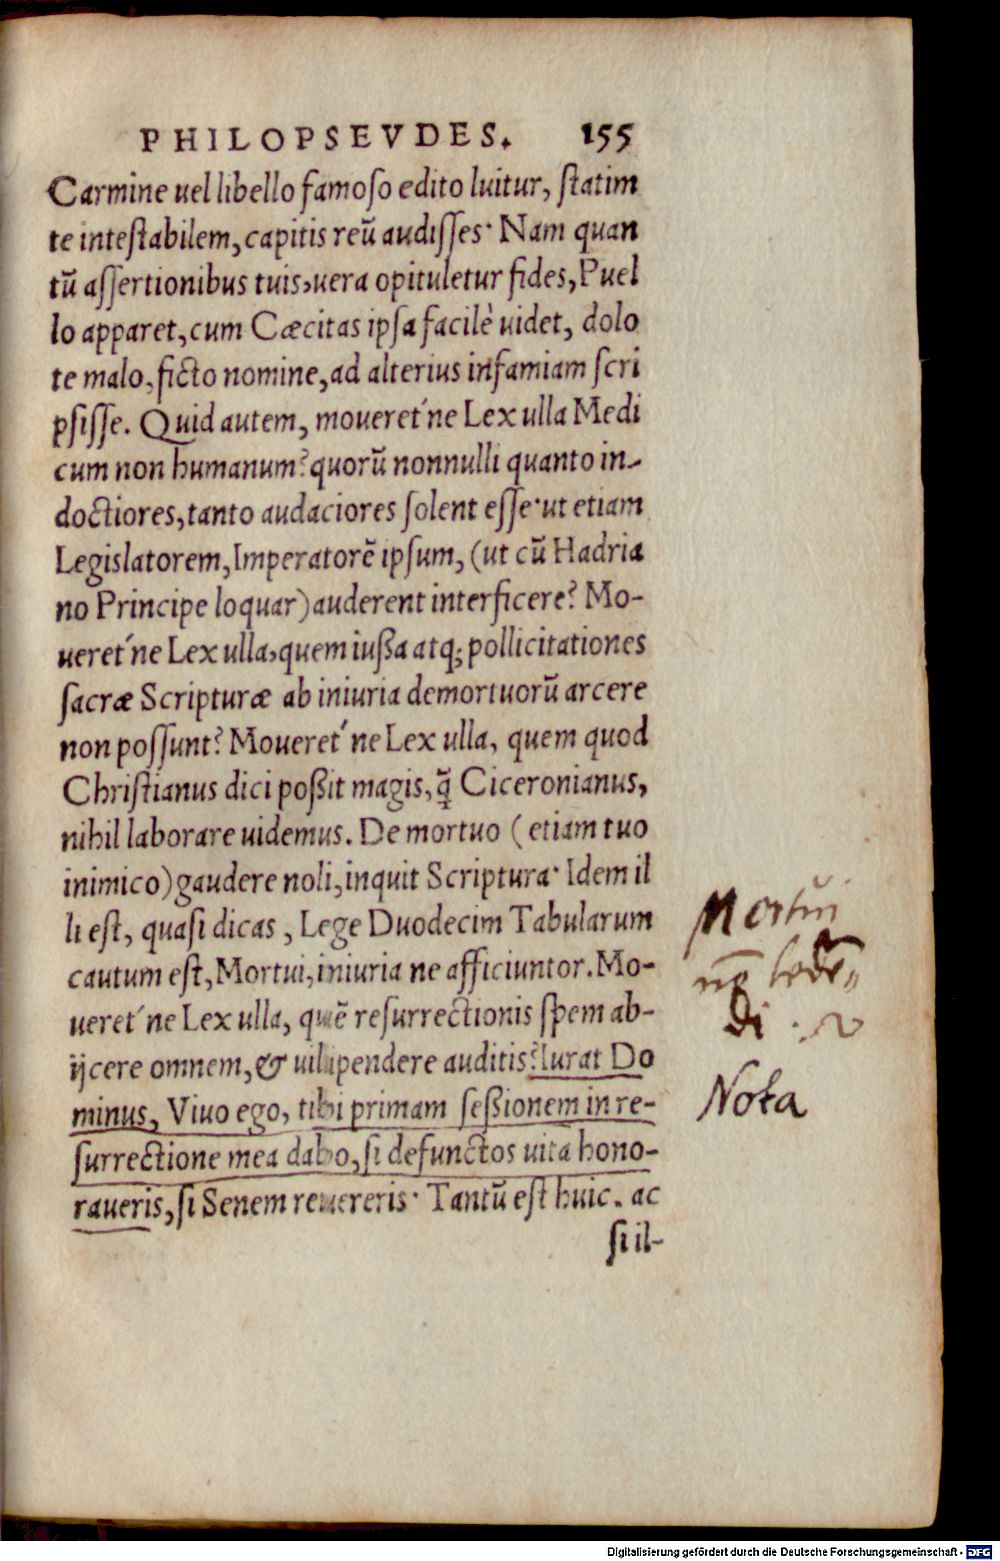 PHILOPSEVDES. 155
Carmine uel libello famoso edito luitur, statim
te intestabilem, capitis reũ audisses· Nam quan
tũ assertionibus tuis, uera opituletur fides, Puel
lo apparet, cum Cæcitas ipsa facilè uidet, dolo
te malo, ficto nomine, ad alterius infamiam scri
psisse. Quid autem, moueret´ne Lex ulla Medi
cum non humanum? quorũ nonnulli quanto in-
doctiores, tanto audaciores solent esse· ut etiam
Legislatorem, Imperatorẽ ipsum, (ut cũ Hadria
no Principe loquar) auderent interficere? Mo-
ueret´ne Lex ulla, quem iußa atq; pollicitationes
sacræ Scripturæ ab iniuria demortuorũ arcere
non possunt? Moueret´ne Lex ulla, quem quod
Christianus dici poßit magis, q̃ Ciceronianus,
nihil laborare uidemus. De mortuo (etiam tuo
inimico) gaudere noli, inquit Scriptura· Idem il
li est, quasi dicas, Lege Duodecim Tabularum
cautum est, Mortui, iniuria ne afficiuntor. Mo-
ueret´ne Lex ulla, quẽ resurrectionis spem ab-
ijcere omnem, & uilipendere auditis? Iurat Do
minus, Viuo ego, tibi primam seßionem in re-
surrectione mea dabo, si defunctos uita hono-
raueris, si Senem reuereris· Tantũ est huic. ac
si il-
Mortui
nõ lede„
di
Nota
Digitalisierung gefördert durch die Deutsche Forschungsgemeinschaft - DFG